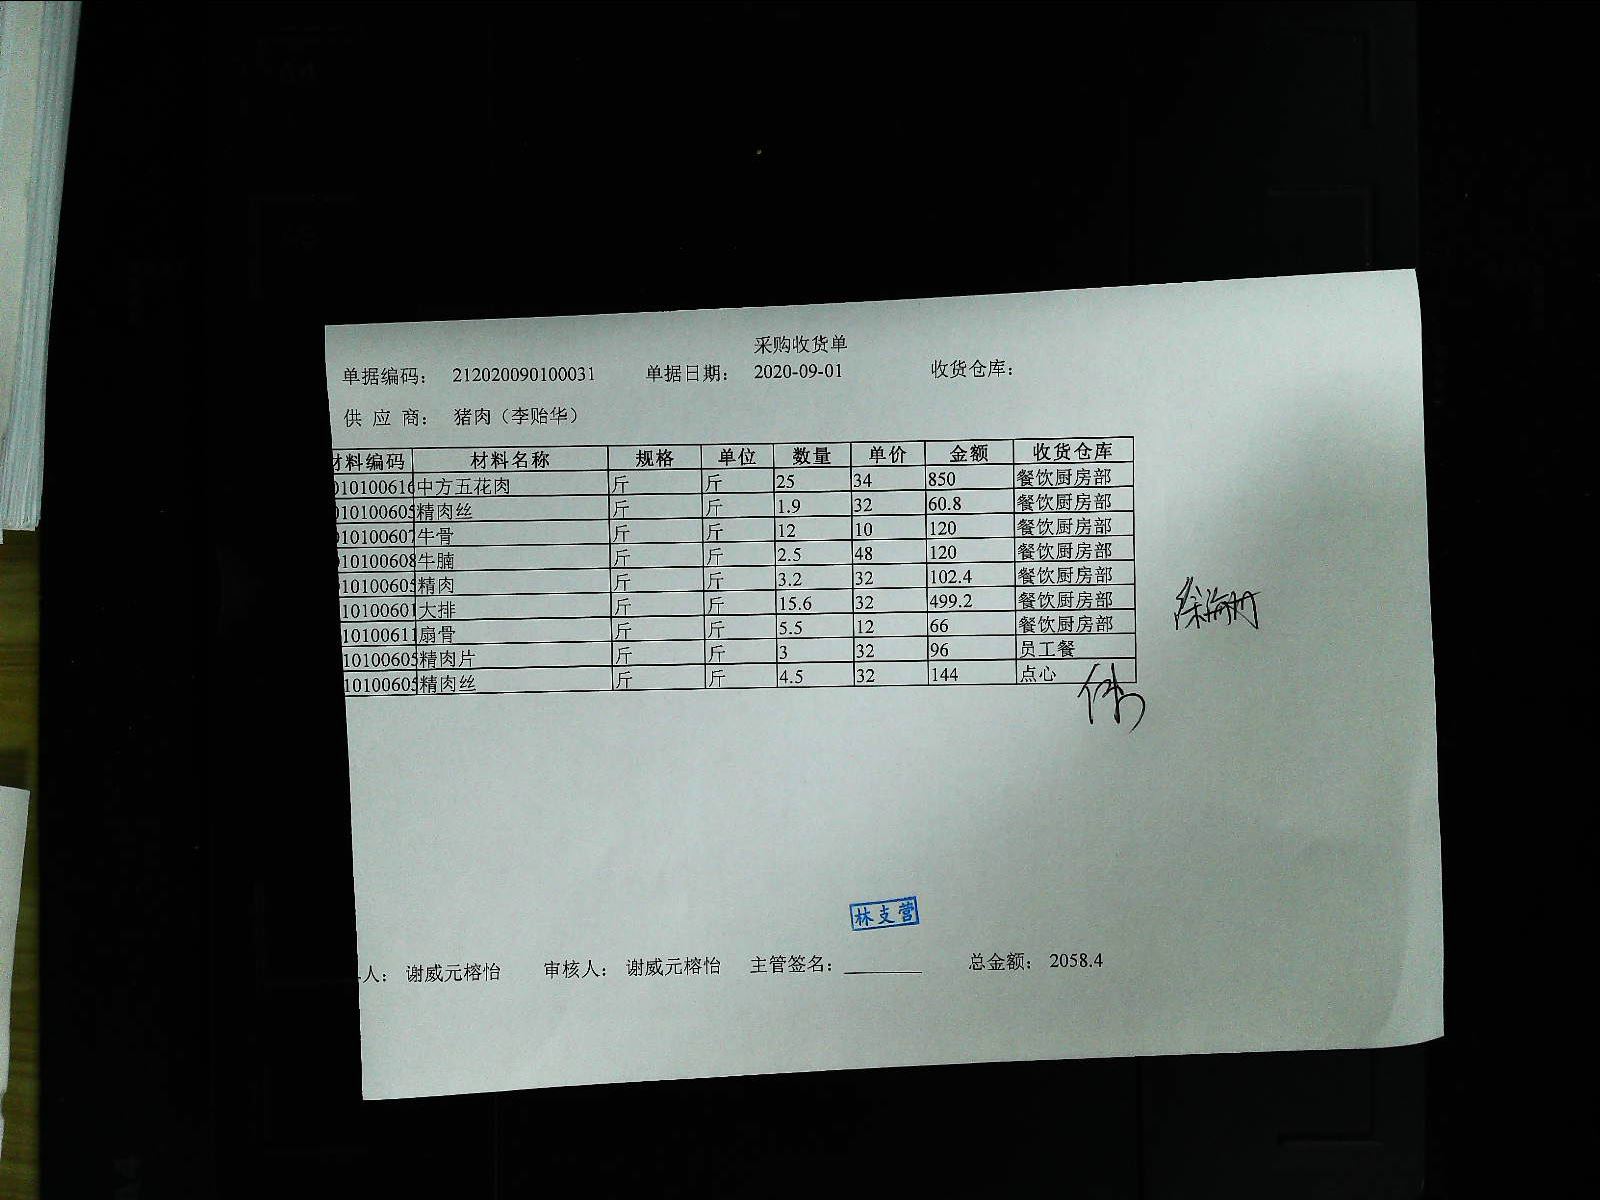 采购收货单
单据编码： 212020090100031 单据日期： 2020-09-01 收货仓库：
供 应 商： 猪肉（李贻华）
材料编码 材料名称 规格 单位 数量 单价 金额 收货仓库
010100616 中方五花肉 斤 斤 25 34 850 餐饮厨房部
010100605 精肉丝 斤 斤 1.9 32 60.8 餐饮厨房部
010100607 牛骨 斤 斤 12 10 120 餐饮厨房部
010100608 牛腩 斤 斤 2.5 48 120 餐饮厨房部
010100605 精肉 斤 斤 3.2 32 102.4 餐饮厨房部
10100601 大排 斤 斤 15.6 32 499.2 餐饮厨房部
10100611 扇骨 斤 斤 5.5 12 66 餐饮厨房部
10100605 精肉片 斤 斤 3 32 96 员工餐
10100605 精肉丝 斤 斤 4.5 32 144 点心
林支营
人： 谢威元榕怡 审核人： 谢威元榕怡 主管签名： 总金额： 2058.4